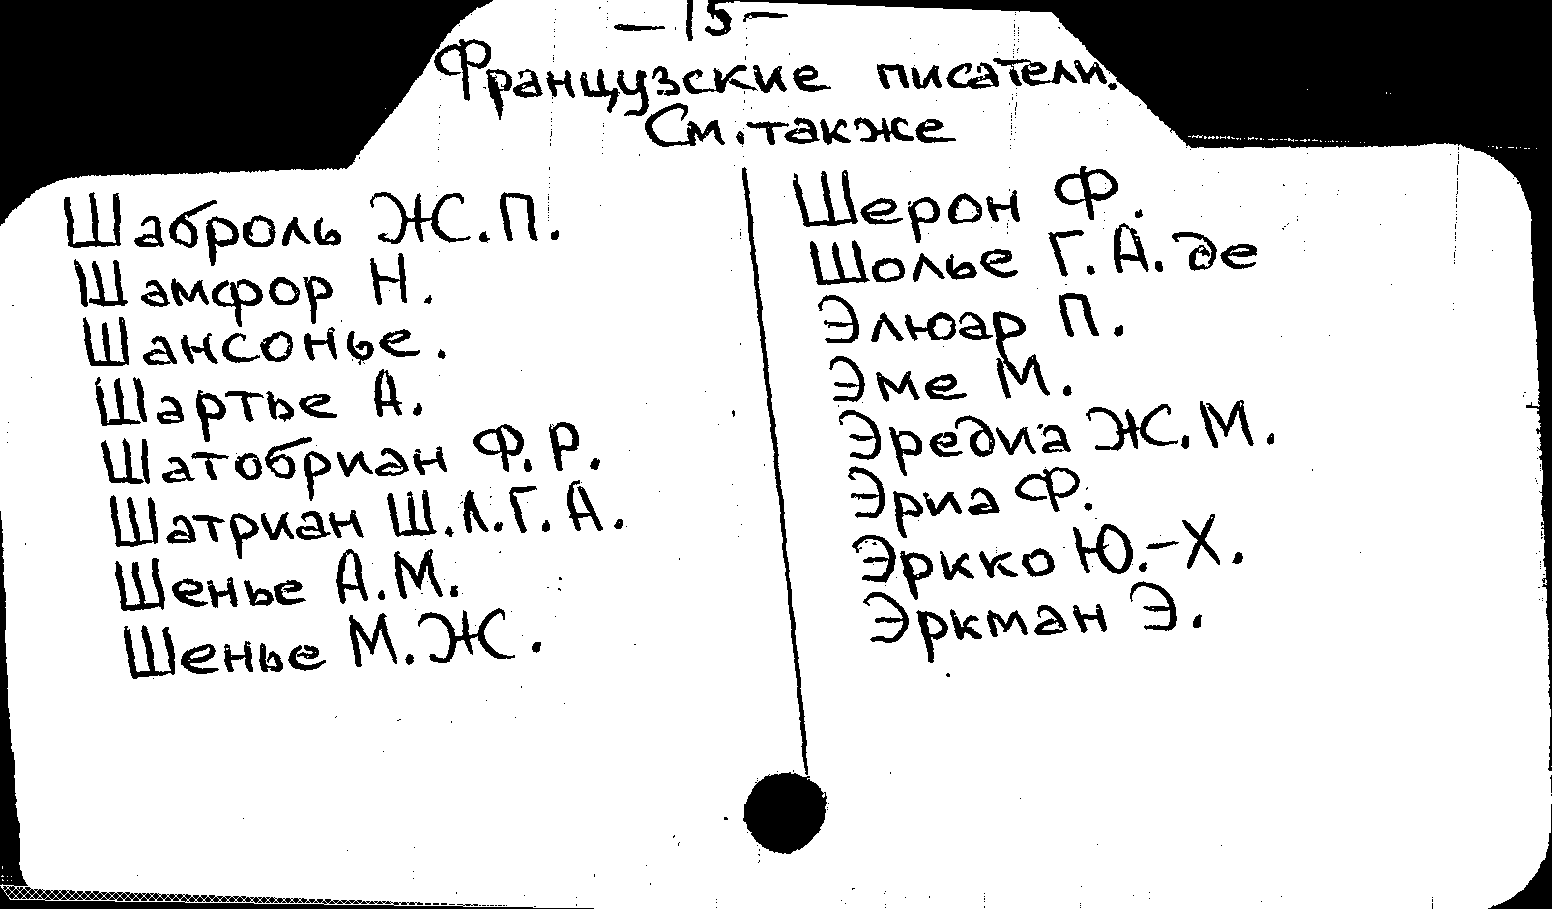 —15—
Французские писатели.
См. также
Шаброль Ж.П.
Шамфор Н.
Шансонье.
Шартье А.
Шатобриан Ф.Р.
Шатриан Ш.Л.Г.А.
Шенье А.М.
Шенье М.Ж.
Шерон Ф.
Шолье Г.А. де
Элюар П.
Эме М.
Эредиа Ж.М.
Эриа Ф.
Эркко Ю.-Х.
Эркман Э.